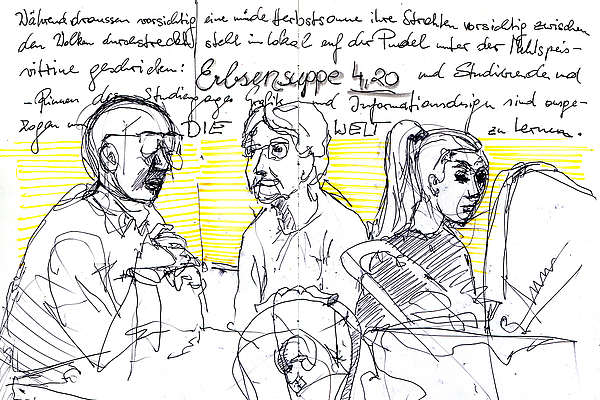 Während draussen vorsichtig eine müde Herbstsonne ihre Strahlen vorsichtig zwischen
den Wolken durchstreckt, steht im Lokal auf der Pudel unter der Mehlspeis-
vitrine geschrieben: Erbsensuppe 4,20 und Studierende und
-Rinnen des Studienganges Grafik- und Informationsdesign sind ange-
zogen um DIE WELT zu lernen.